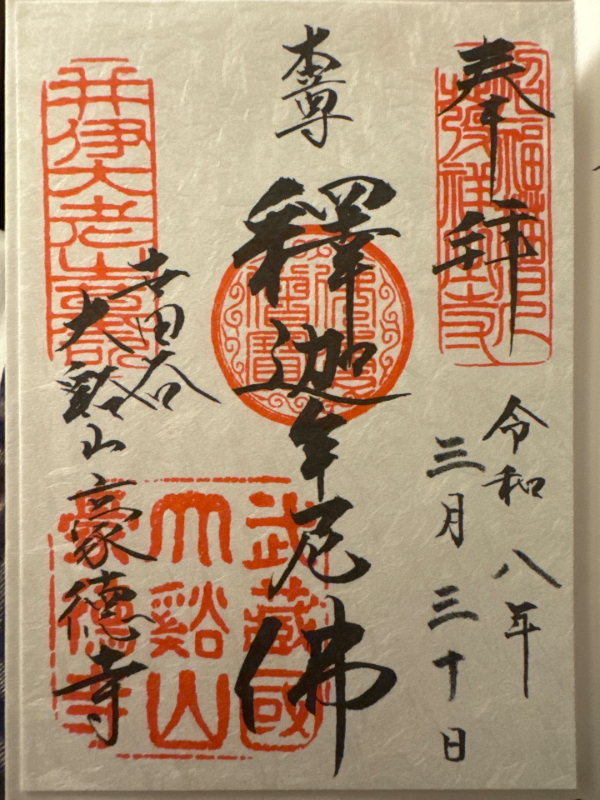 奉拝
令和八年
三月三十日
本尊
釋迦牟尼佛
世田谷
大谿山豪德寺
井伊大老
武藏國
大谿山
豪德寺